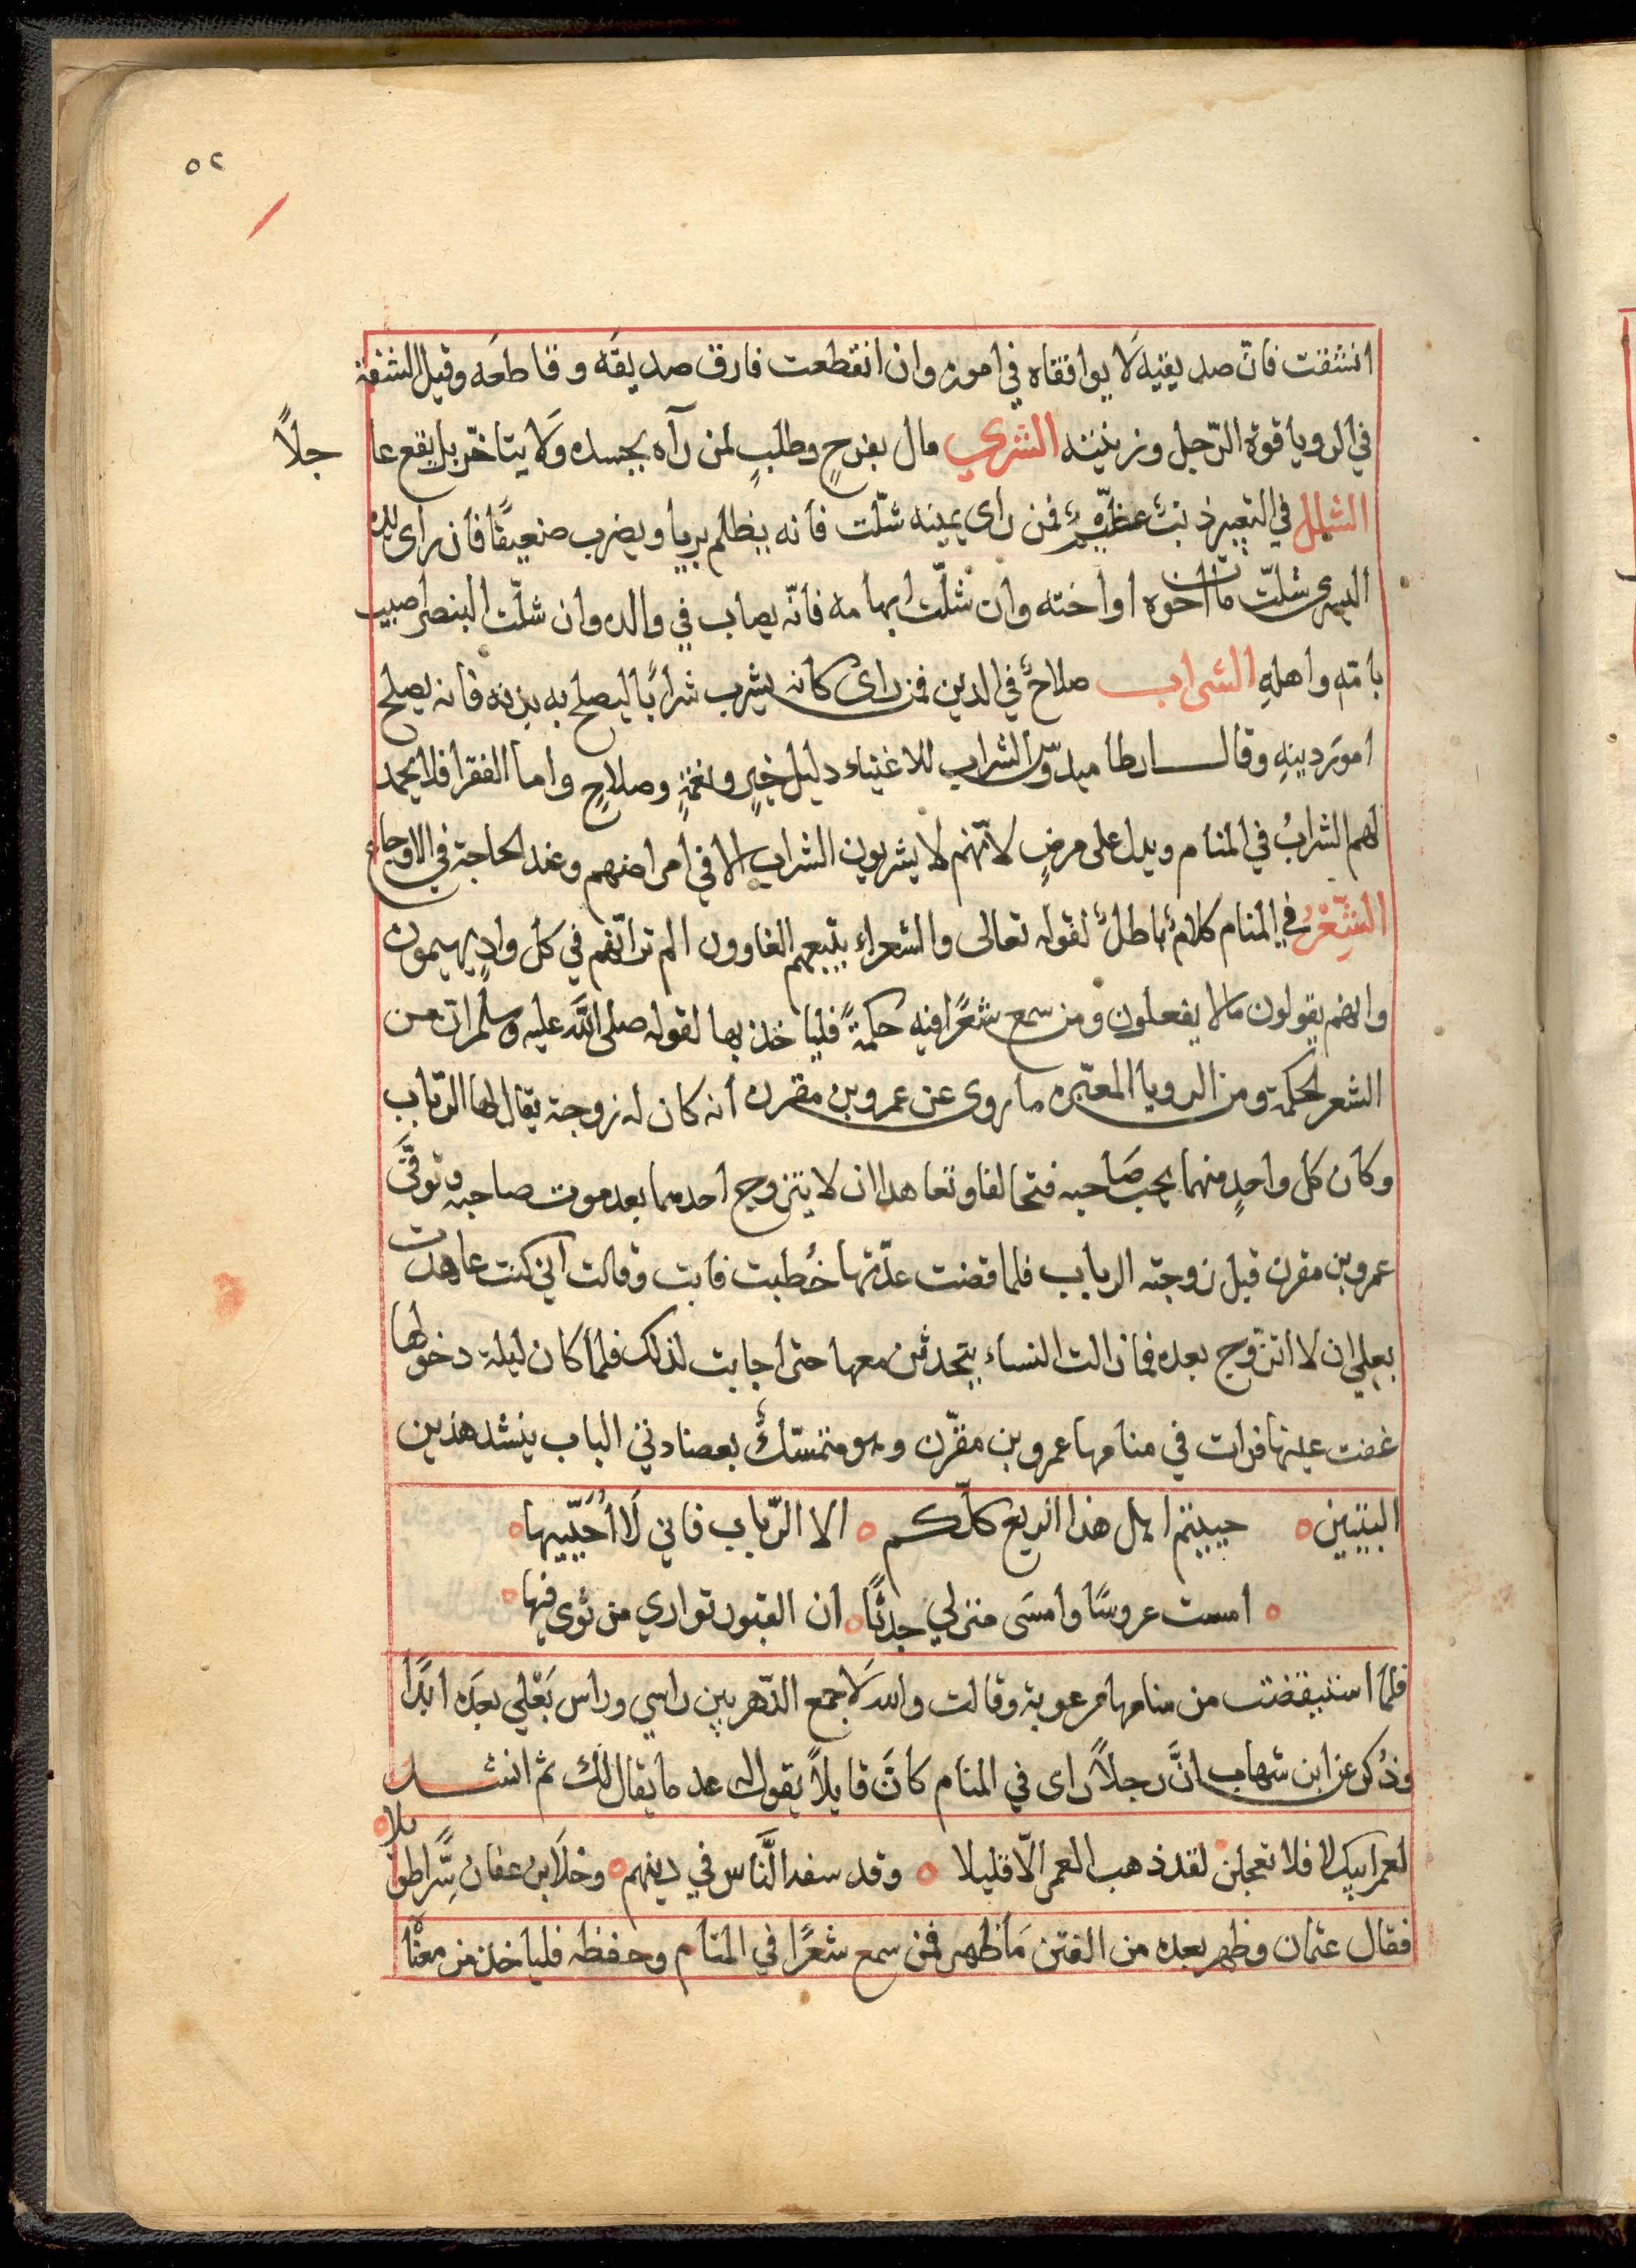 ٥٢
انشقت فانّ صديقيه لَا يوافقاه في اموره وان انقطعت فارق صديقَه وقاطعَه وقيل الشفة
في الرويا قوة الرّجل وزينته الشري مال بفرحٍ وطلبٍ لمن رآه بجسده وَلا يتاخّر بل يقع عا جلاً
الشلل في التعبير ذنبٌ عظيمٌ فمن راى يمينه شلّت فانه يظلم بريا ويضرب ضعيفًا فان راى يده
اليسرى شلتّ مات اخوه او اخته وان شلّت ابهامه فانّه يصاب في والده وان شلّت البنصر اصيب
بامّهِ واهلهِ الشراب صلاحٌ في الدين فمن راى كانه يشرب شرابًا ليصلح به بدنه فانه يصلح
امورَ دينهِ وقال ارطاميدوّس الشراب للاغنياء دليل خيرٍ ونعمةٍ وصلاحٍ واما الفقرا فلا يحمد
لهم الشرابُ في المنام ويدل على مرضٍ لانّهم لا يشربون الشراب الا في امراضهم وعند الحاجة في الاوجاع
الشّعْرُ في المنام كلامٌ باطلٌ لقوله تعالى والشعراء يتبعهم الغاوون الم تر انّهم في كل وادٍ يهيمون
وانهم يقولون مالا يفعلون ومن سمع شعرًا فيه حكمةً فلياخذ بها لقوله صلى اللّه عليه وسلم ان من
الشعر لحكمة ومن الرويا المعتبره ما روى عن عمرو بن مقرن انه كان له زوجة يقال لها الرّباب
وكان كل واحدٍ منهما يحب صَاحبه فتحالفا وتعاهدا ان لا يتزوج احدهما بعد موت صاحبه وتوفّى
عمرو بن مقرن قبل زوجته الرباب فلما قضت عدّتها خُطبت فابت وقالت اني كنت عاهدت
بعلي ان لا اتزّوج بعده فما زالت النساء يتحدثن معها حتى اجابت لذلك فلما كان ليلة دخولها
غضت عينها فرات في منامها عمرو بن مقرّن وهو متمسّكٌ بعضادتي الباب ينشد هذين
البيتين حييتم اهل هذا الربع كلّكم الا الرّباب فاني لَا اُحَيّيها
امست عروسًا وامسَى منزلي جدثًا ان القبور تواري من ثوى فيها
فلمّا استيقضت من منامها مرعوبة وقالت والله لَا جمع الدّهر بين راسي وراس بَعْلي بعدَه ابدًا
وذُكر عن ابن شهاب انَّ رجلاً راى في المنام كانَّ قايلاً يقول له عد ما يقال لك ثم انشد
لعمر ابيك لا فلا تعجلن لقد ذهب العمر الّا قليلا وقد سفه النَّاس في دينهم وخلا بن عفان شَّرا طويلا
فقال عثمان وظهر بعده من الفتن مَا ظهر فمن سمع شعرًا في المنام وحفظه فلياخذ من معنْا